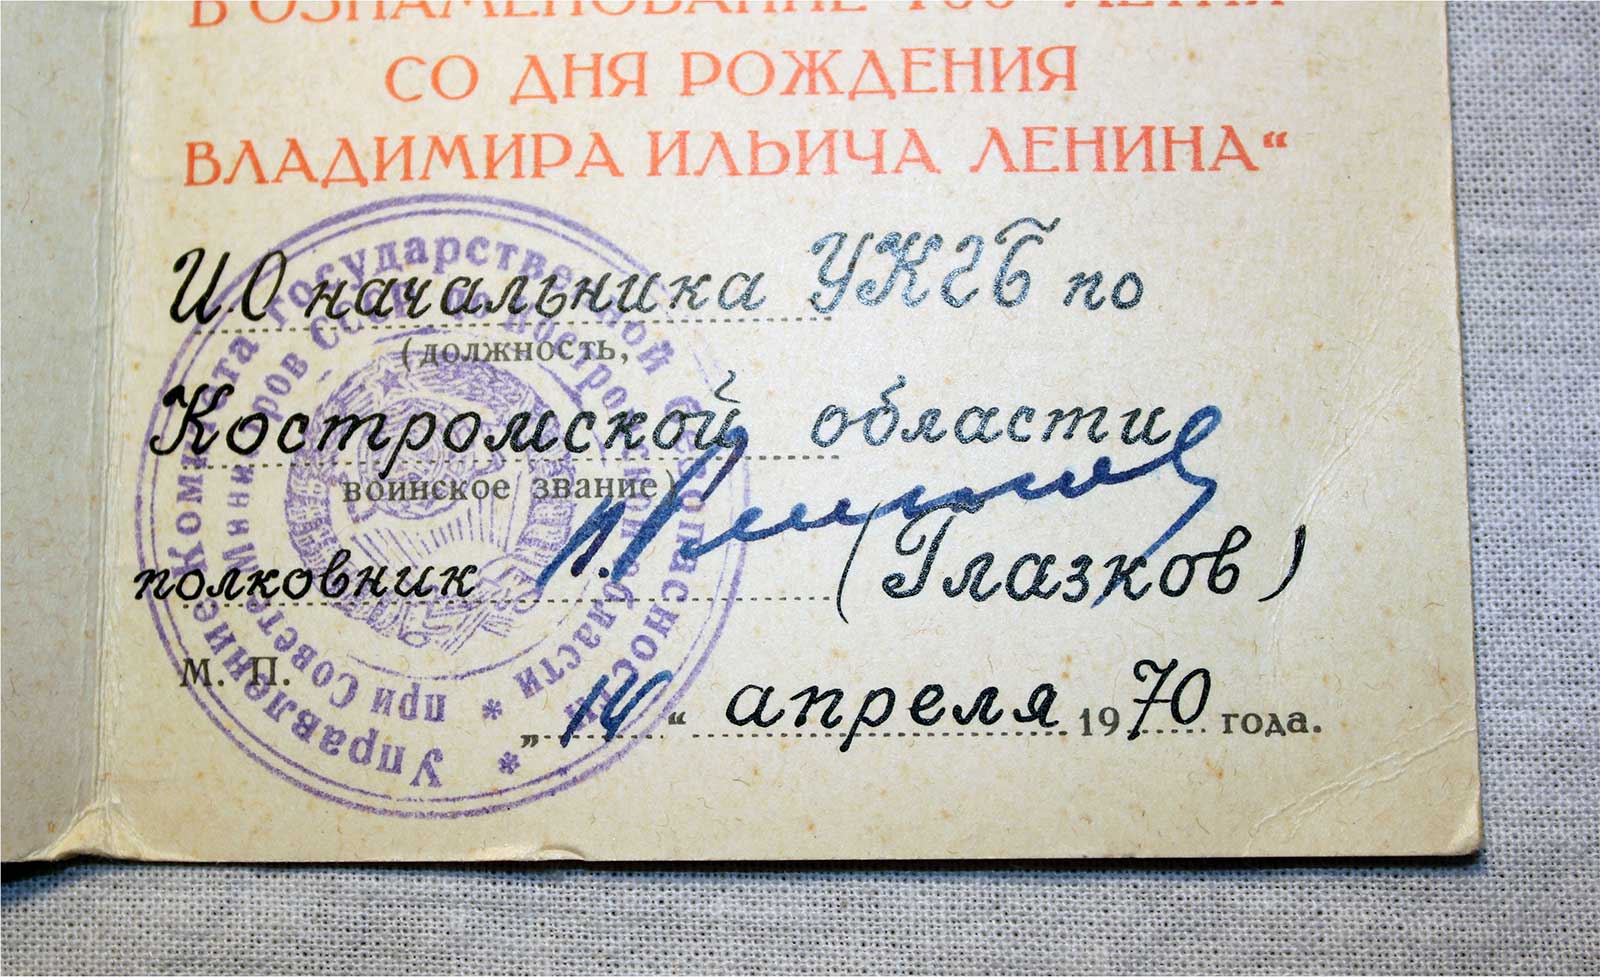 В ОЗНАМЕНОВАНИЕ 100-ЛЕТИЯ
СО ДНЯ РОЖДЕНИЯ
ВЛАДИМИРА ИЛЬИЧА ЛЕНИНА“
ИО начальника УКГБ по
(должность,
Костромской области
воинское звание)
полковник (Глазков)
М. П.
„14“ апреля 1970 года.
Управление Комитета Государственной Безопасности *
при Совете Министров СССР по Костромской области *